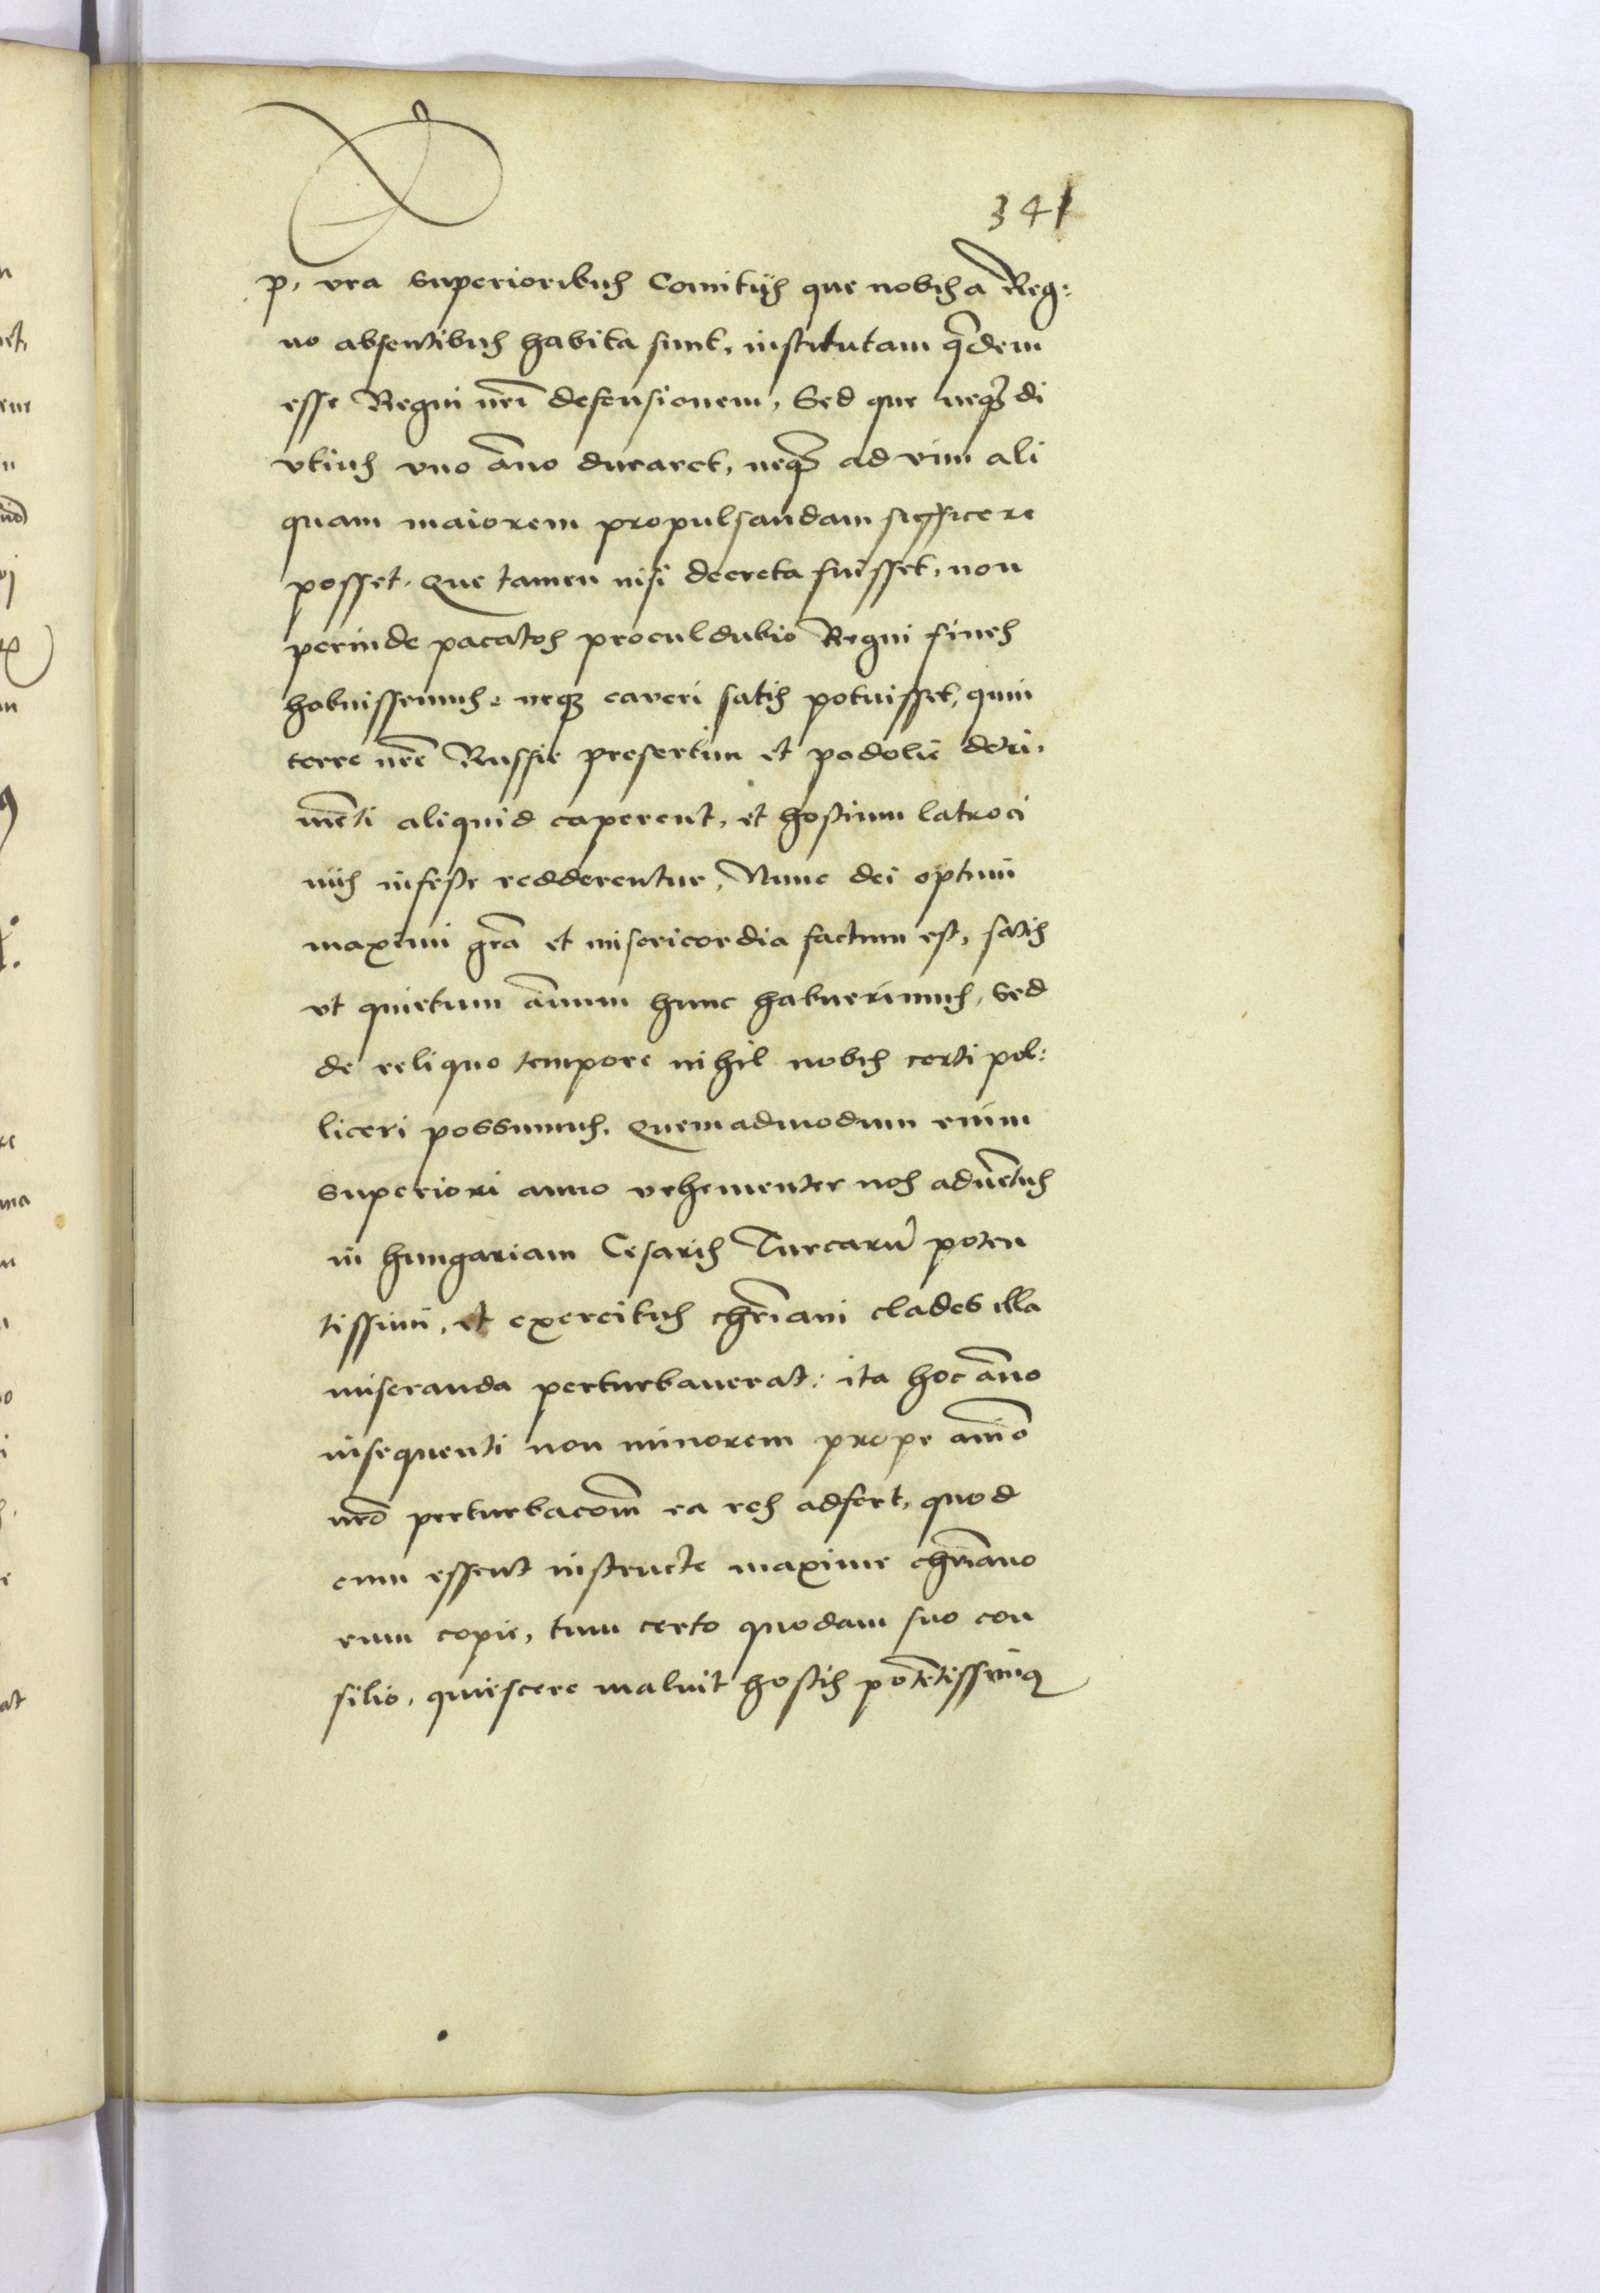 341
p. vra superioribus Comitijs que nobis a Reg:
no absentibus habita sunt, institutam q̃dem
esse Regni nrĩ defensionem, Sed que neq₃ di
vtius vno ãno duraret, neq₃ ad vim ali
quam maiorem propulsandam sufficere
posset. Que tamen nisi decreta fuisset, non
perinde pacatos proculdubio Regni fines
habuissemus, neq₃ caveri satis potuisset, quin
terre nrẽ Russie presertim et podolie detri-
mẽti aliquid caperent, et hostium latroci
niis infeste redderentur, Nunc dei optimi
maximi grã et misericordia factum est, satis
vt quietum ãnum hunc habuerimus, Sed
de reliquo tempore nihil nobis certi pol:
liceri possumus. Quemadmodum enim
superiori anno vehementer nos aduẽtus
in hungariam Cesaris Turcarũ poten
tissimi, et exercitus chrĩani clades illa
miseranda perturbauerat: ita hoc ãno
insequenti non minorem prope aĩo
nrõ perturbacom̃ ea res adfert, quod
cum essent instructe maxime chrĩano
rum copie, tum certo quodam suo con
silio, quiescere maluit hostis potẽtissimꝰ